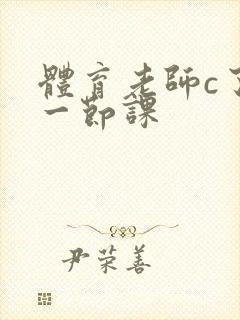 體育老師c了
一節課
尹荣善